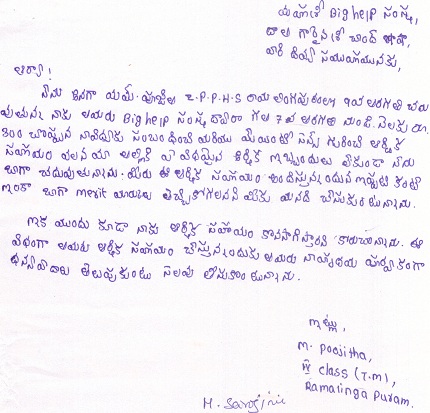 యహెశ Big help సంస్థ,
దాత గారైన శ్రీ చాంద్ పాషా
వారి దివ్య సముఖమునకు,
ఆర్యా!
నేను అనగా యమ్. పూజిత Z.P.P.H.S రామలింగపురంలో 9వ తరగతి చదు
వుతున్న నాకు తమరు Big help సంస్థ ద్వారా గత 7వ తరగతి నుండి నెలకు రూ.
300 చొప్పున నా చదువుకు సంబంధించి మరియు
సహాయం వలన మా ఎటువంటి ఆర్థిక ఇబ్బందులు లేకుండా నేను
బాగా చదువుతున్నాను. మీరు ఈ ఆర్థిక సహాయం అందిస్తున్నందున ఇప్పటి కంటే
ఇంకా బాగా merit మార్కులు తెచ్చుకోగలనని మీకు మనవి చేసుకుంటున్నాను.
ఇక ముందు కూడా నాకు ఆర్థిక సహాయం కొనసాగిస్తారని కోరుచున్నాను. ఈ
విధంగా తమరు ఆర్థిక సహాయం చేస్తున్నందుకు తమరు నా హృదయ పూర్వకంగా
ధన్యవాదాలు తెలుపుకుంటు సెలవు తీసుకుంటున్నాను.
ఇట్లు,
M. Poojitha,
class (T.M),
Ramalinga Puram.
M. Sarojini